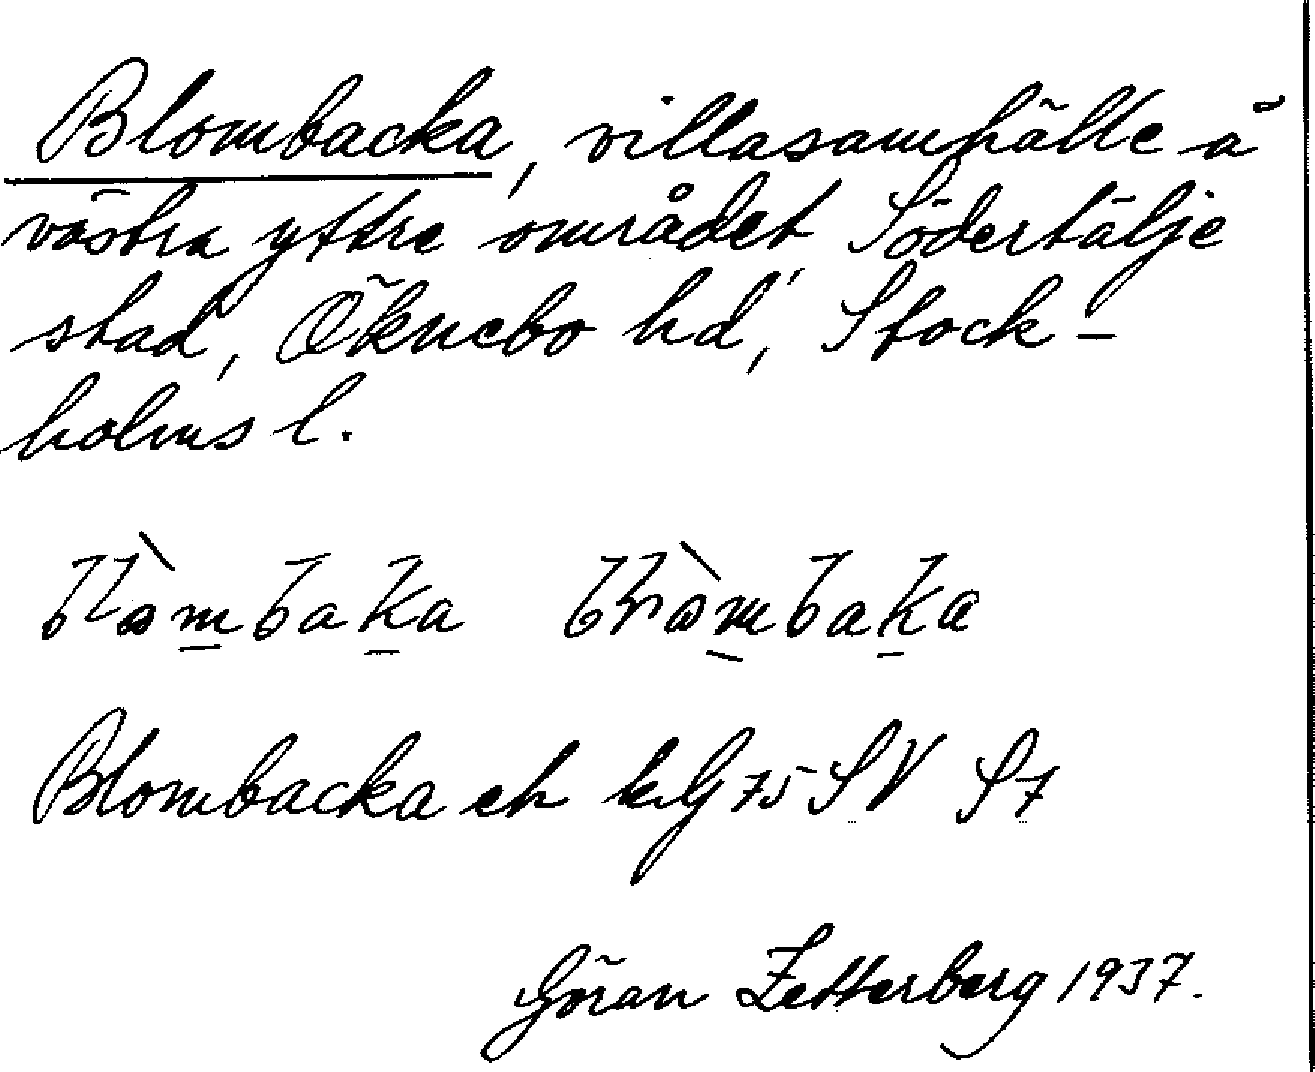 Blombacka, villasamhälle å
västra yttre området, Södertälje
stad, Öknebo hd, Stock-
holms l.
Blombacka ek
Göran Zetterberg 1937.